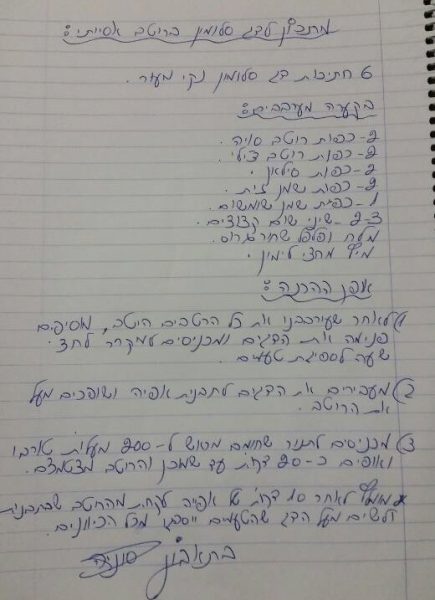 מתכון לדג סלומון ברוטב אסייתי:
6 חתיכות דג סלומון נקי מעור.
בקערה מערבבים:
2- כפות רוטב סויה.
2- כפות רוטב צ'ילי.
2- כפות סילאן.
2- כפות שמן זית.
1- כפית שמן שומשום.
2-3 שיני שום קצוצים.
מלח ופלפל שחור גרוס.
מיץ מחצי לימון.
אופן ההכנה:
1) לאחר שעירבבנו את כל הרטבים היטב, מוסיפים
פנימה את הדגים ומכניסים למקרר לחצי
שעה לספיגת טעמים.
2) מעבירים את הדגים לתבנית אפיה ושופכים מעל
את הרוטב.
3) מכניסים לתנור שחומם מראש ל-200 מעלות טורבו
ואופים כ-20 דקות עד שמוכן והרוטב מצטמצם.
* מומלץ לאחר 10 דקות של אפיה לקחת מהרוטב שבתבנית
ולשים מעל הדג שהטעמים ייספגו מכל הכיוונים.
בתאבון סוניה